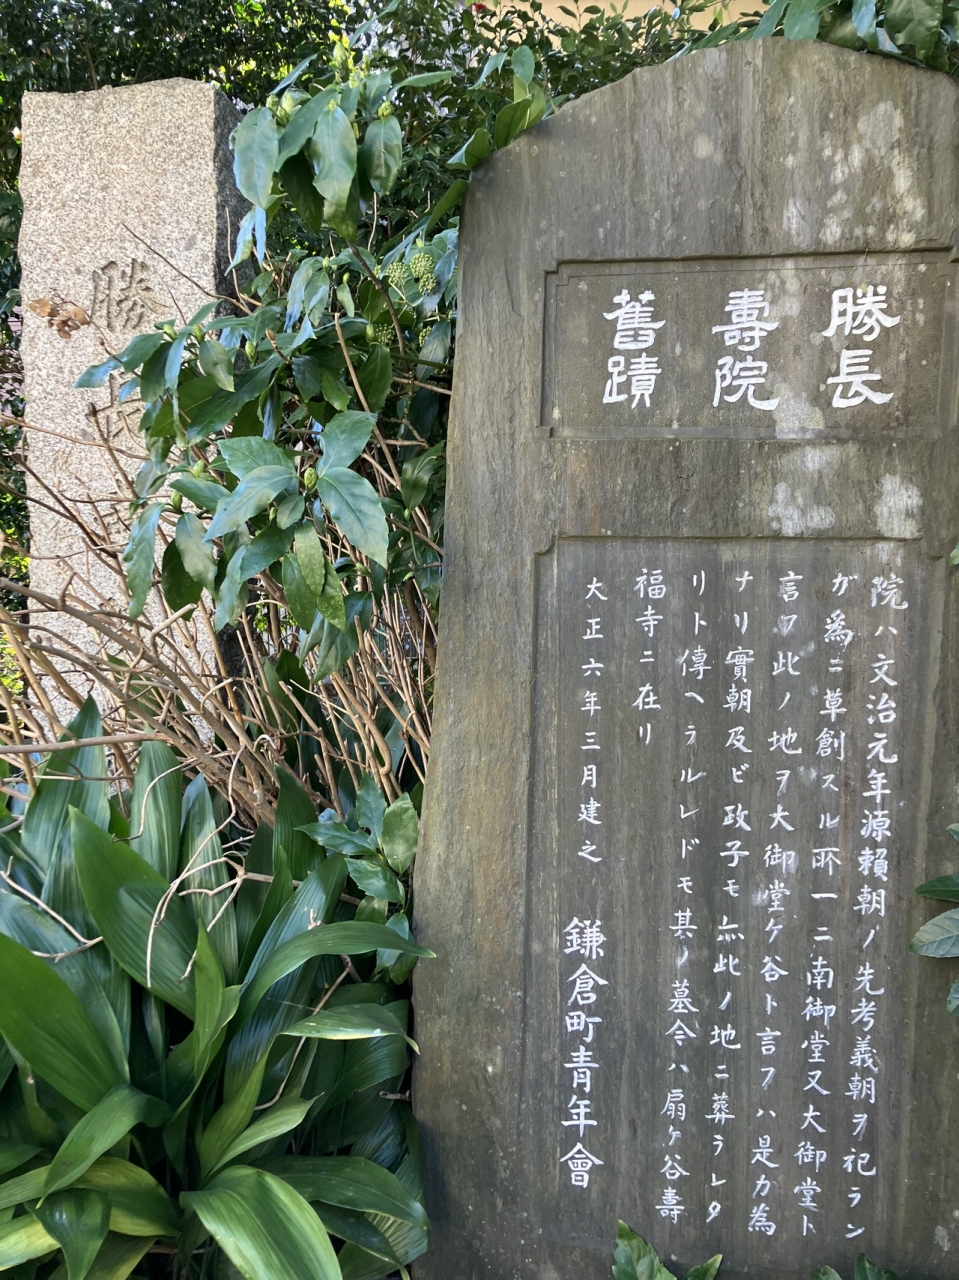 勝長
壽院
舊蹟
院ハ文治元年源頼朝ノ先考義朝ヲ祀ラン
ガ爲ニ草創スル所一ニ南御堂又大御堂ト
言フ此ノ地ヲ大御堂ケ谷ト言フハ是カ為
ナリ實朝及ビ政子モ亦此ノ地ニ葬ラレタ
リト傳ヘラルレドモ其ノ墓今ハ扇ケ谷壽
福寺ニ在リ
大正六年三月建之 鎌倉町青年會
勝